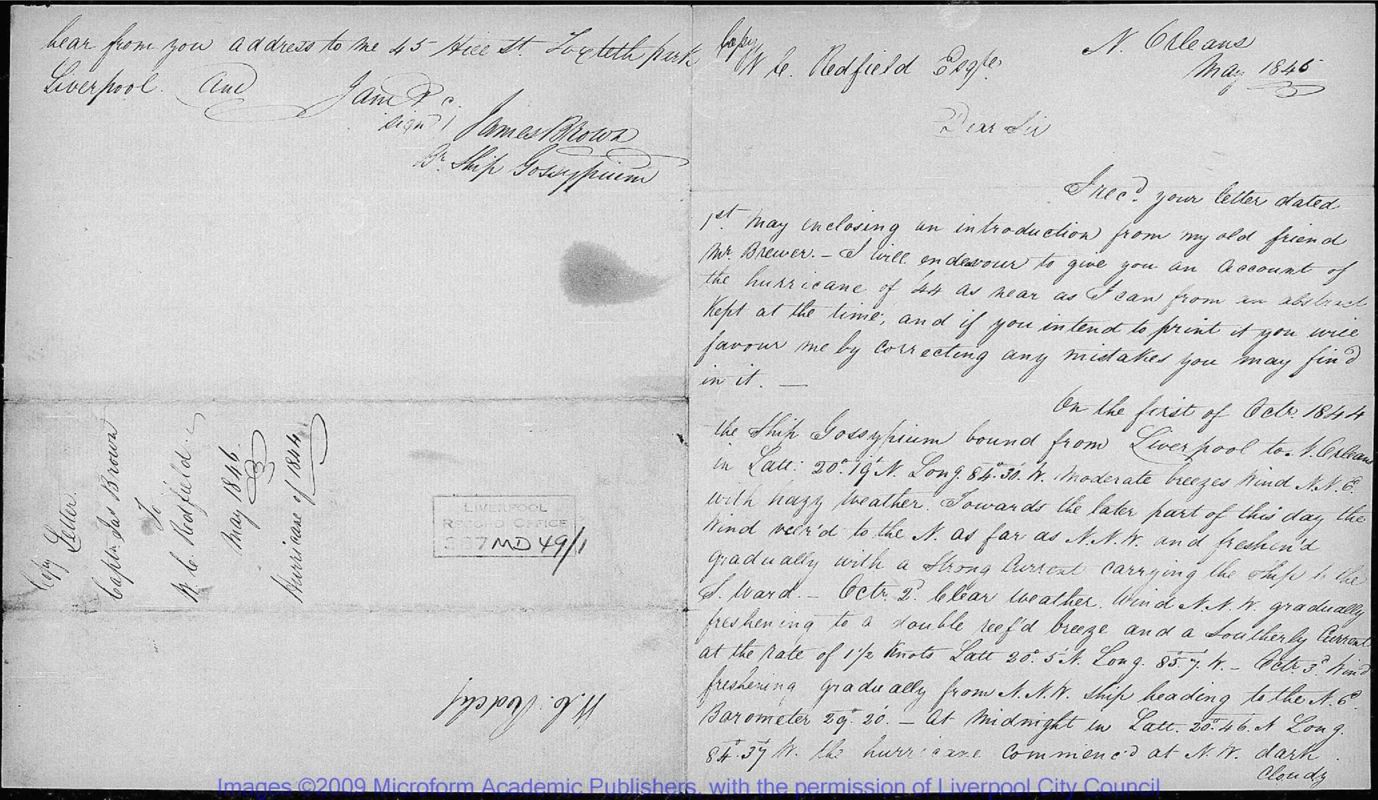 hear from you address to me 45 Hill St. Toxteth park
Liverpool. And
I am &c.
sign'd James Brown
Br. Ship Gossypium
Copy Letter
Captn. Jas Brown
To
W. C. Redfield
May 1846
Hurricane of 1844
LIVERPOOL
RECORD OFFICE
387 MD 49/1
Copy
W. C. Redfield Esqre.
N. Orleans
May 1846
Dear Sir
I recd. your letter dated
1st. May enclosing an introduction from my old friend
Mr. Brewer. – I will endeavour to give you an Account of
the hurricane of 44 as near as I can from an abstract
Kept at the time, and if you intend to print it you will
favour me by correcting any mistakes you may find
in it. —
On the first of Octr. 1844
the Ship Gossypium bound from Liverpool to N. Orleans
in Latt: 20°.19' N. Long. 84°.30'. W. Moderate breezes Wind N.N.E.
with hazy weather. Towards the later part of this day the
Wind veer'd to the N. as far as N.N.W. and freshen'd
gradually with a Strong Current carrying the Ship to the
S. Ward. – Octr. 2d. Clear Weather. Wind N.N.W. gradually
freshening to a double reef'd breeze and a Southerly Current
at the rate of 1 1/2 Knots Latt 20°. 5' N. Long. 85°.7' W. – Octr. 3d. Wind
freshening gradually from N.N.W. Ship heading to the N.Ed.
Barometer 29°. 20'. – At Midnight in Latt. 20°.46'. N Long.
84°.37' W. the hurricane commenc'd at N.W. dark
Cloudy
Images ©2009 Microform Academic Publishers, with the permission of Liverpool City Council